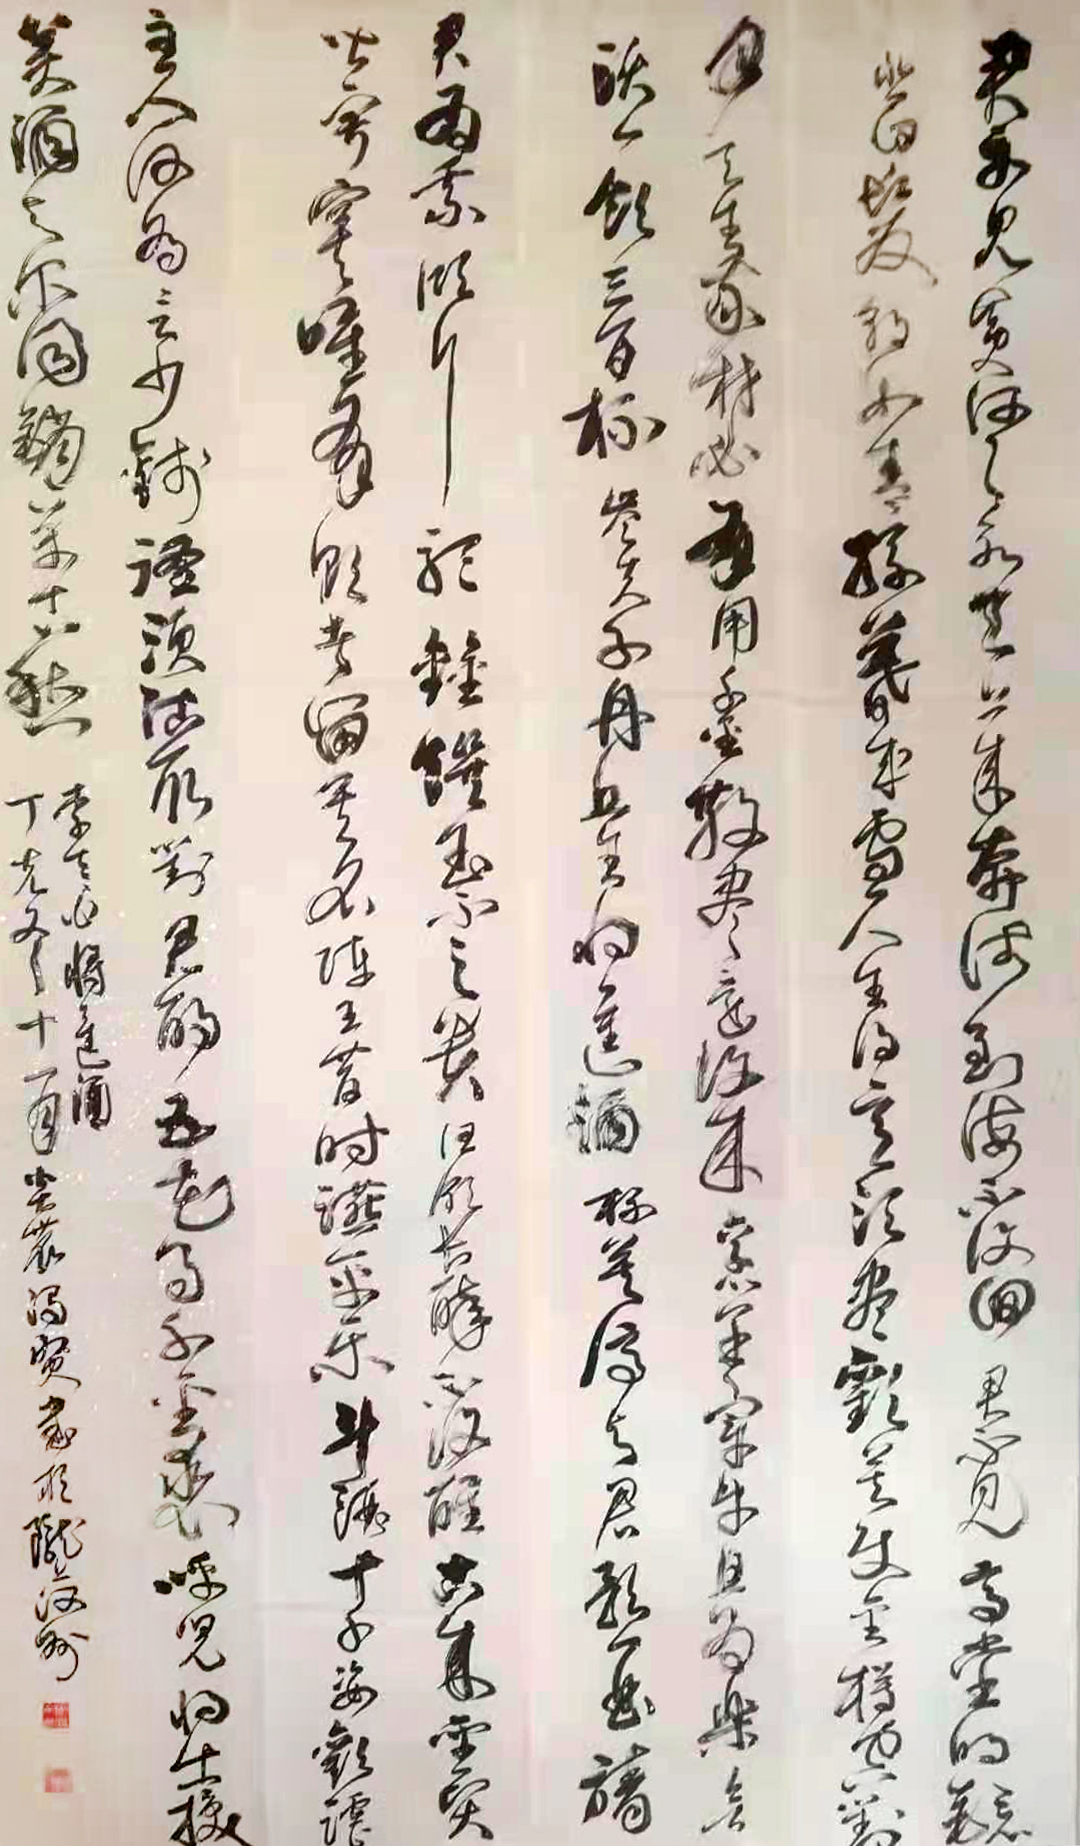 君不见黄河之水天上来奔流到海不复回君不见高堂明镜悲
白发朝如青丝暮成雪人生得意须尽欢莫使金樽空对
月天生我材必有用千金散尽还复来烹羊宰牛且为乐会
须一饮三百杯岑夫子丹丘生将进酒杯莫停与君歌一曲请
君为我倾耳听钟鼓馔玉不足贵但愿长醉不复醒古来圣贤
皆寂寞唯有饮者留其名陈王昔时宴平乐斗酒十千恣欢谑
主人何为言少钱径须沽取对君酌五花马千金裘呼儿将出换
美酒与尔同销万古愁
李太白将进酒
丁
十一月
书于陇